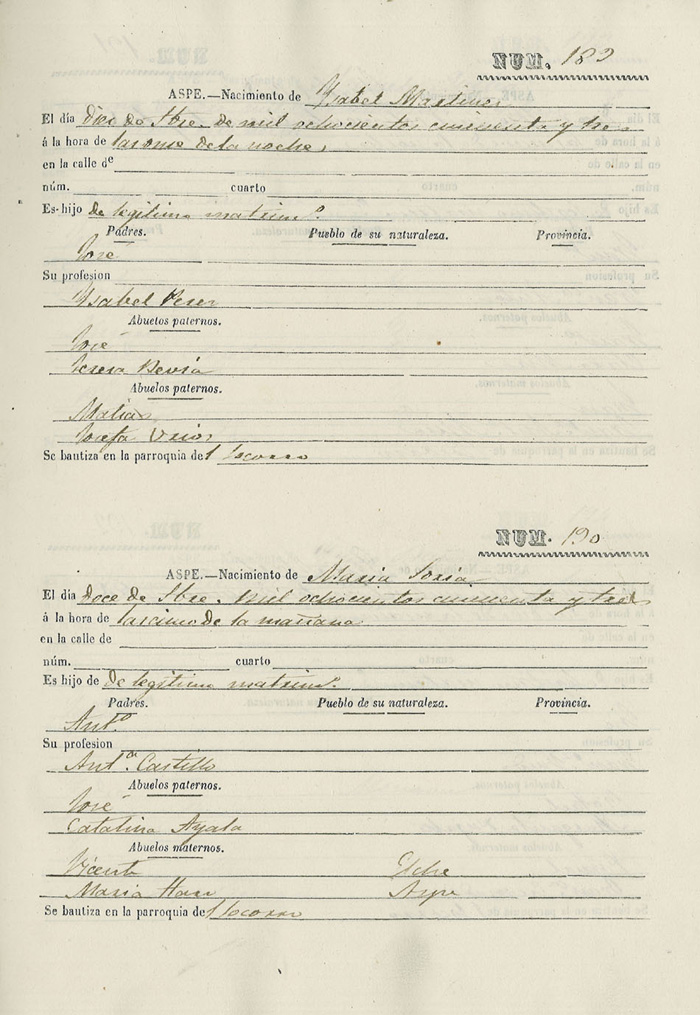 NUM. 189
ASPE.—Nacimiento de Ysabel Martinez
El dia Diez de Sbre. de mil ochocientos cincuenta y tres
á la hora de las once de la noche,
en la calle de
núm. cuarto
Es hijo de legitimo matrim.º
Padres. Pueblo de su naturaleza. Provincia.
José
Su profesion
Ysabel Perez
Abuelos paternos.
José
Teresa Pavía
Abuelos paternos.
Matias
Josefa
Se bautiza en la parroquia del Socorro
NUM. 190
ASPE.—Nacimiento de Maria Soria
El dia Doce de Sbre. mil ochocientos cincuenta y tres
á la hora de las cinco de la mañana
en la calle de
núm. cuarto
Es hijo de de legitimo matrim.º
Padres. Pueblo de su naturaleza. Provincia.
Ant.º
Su profesion
Ant.ª Castillo
Abuelos paternos.
José
Catalina Ayala
Abuelos maternos.
Vicente Elche
Maria Aspe
Se bautiza en la parroquia del Socorro